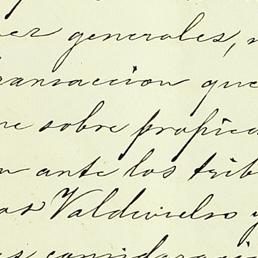 er generales, n
ransaccion que
re sobre propied
n ante los trib
os Valdivielso y
es consideracio